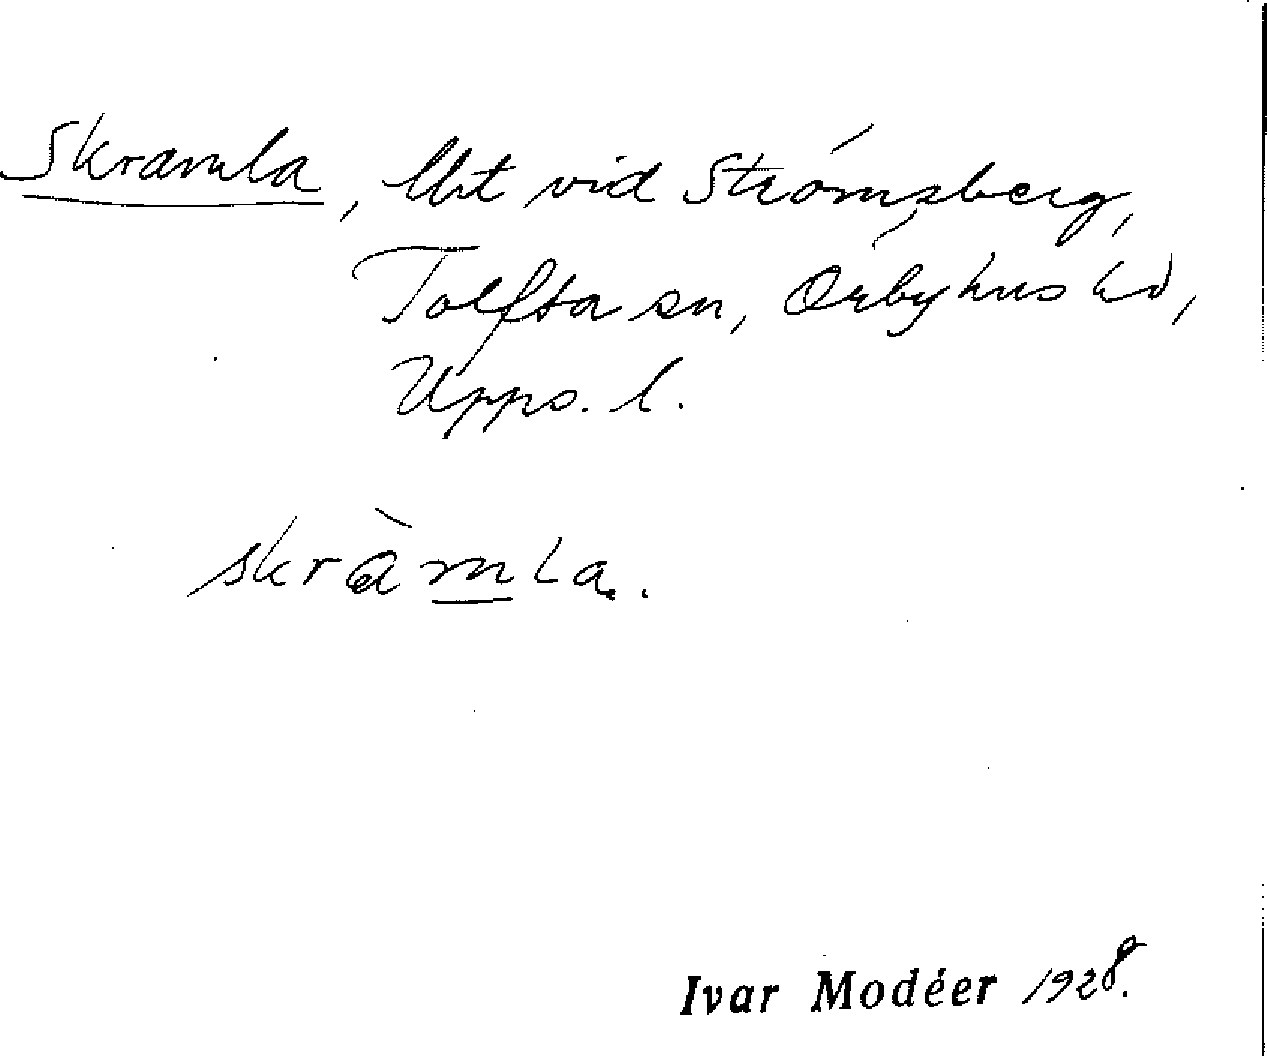 Skramla, lht vid Strömsberg,
Tolfta sn, Örbyhus hd,
Upps. l.
skràmla.
Ivar Modéer 1928.